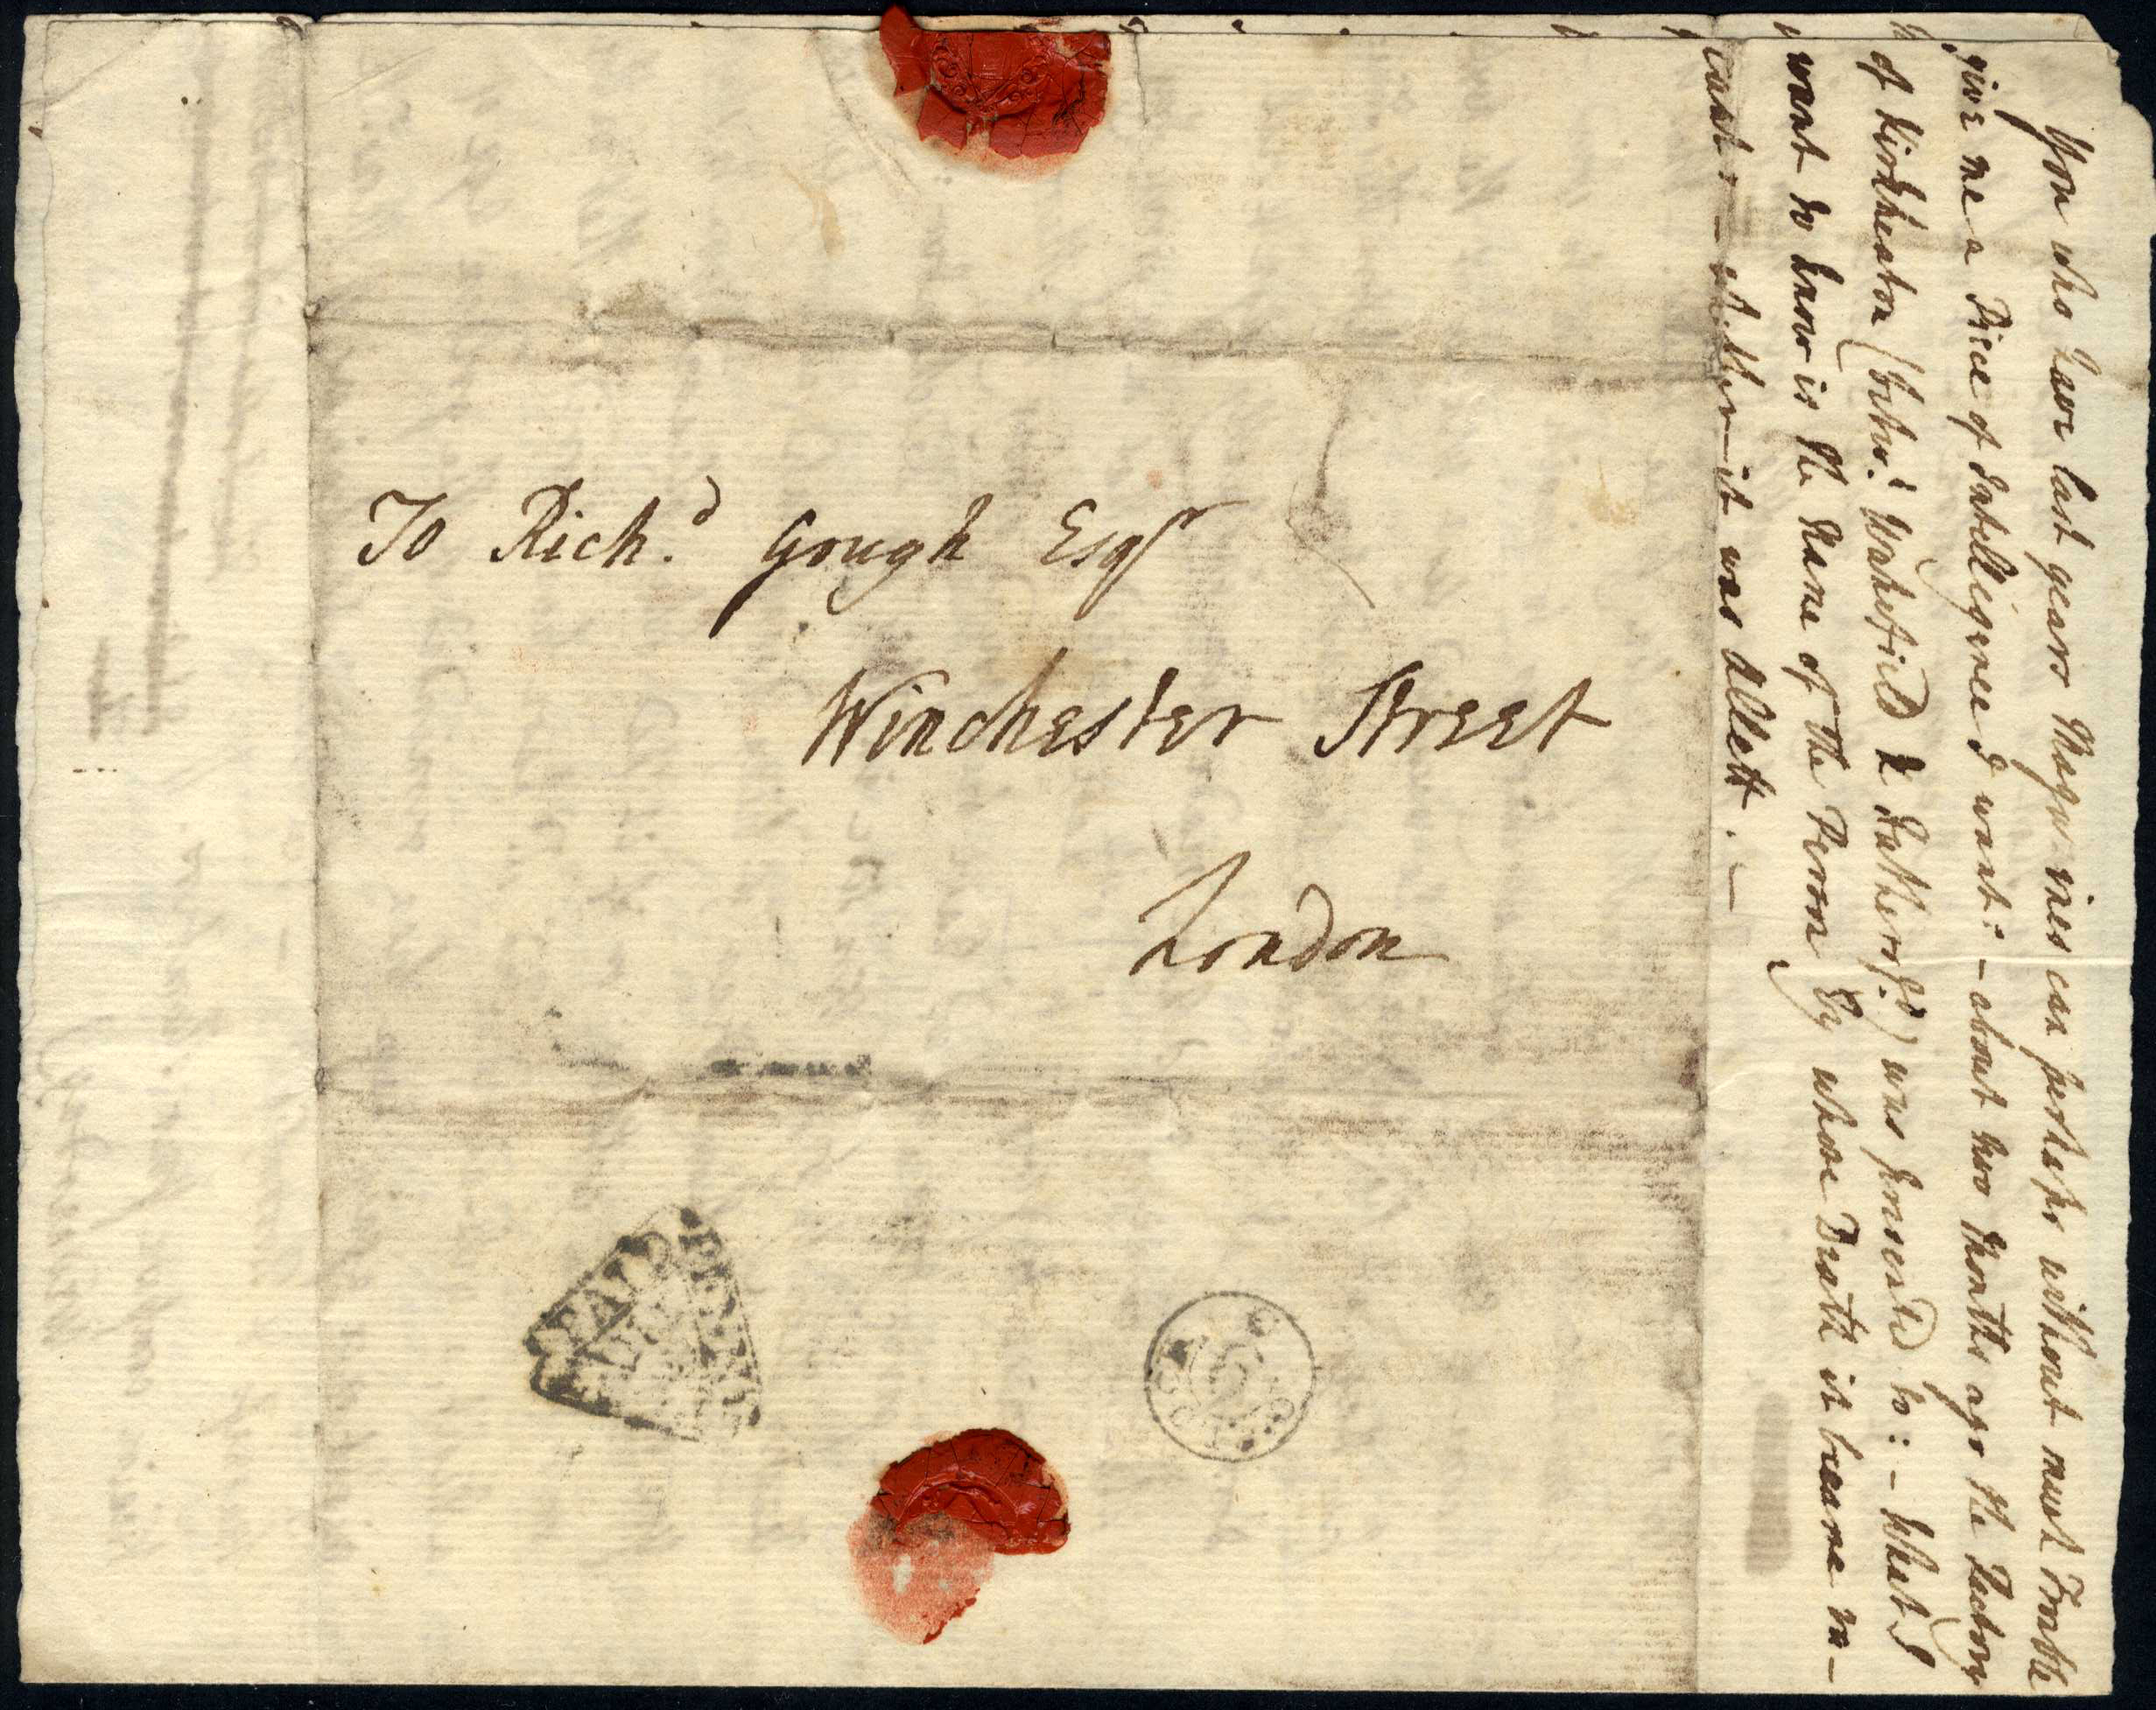 To Rich.d Gough Esqr
Winchester Street
London
You who have last years Magazines can perhaps without much Trouble
give me a Piece of Intelligence I want: – about two Months ago the Rectory
of Kirkheaton (betw.t Wakefield & ) was presented to: – What I
want to know is the Name of the Person by whose Death it became va-
cant – whether it was Allett. –
PENNY
PAID